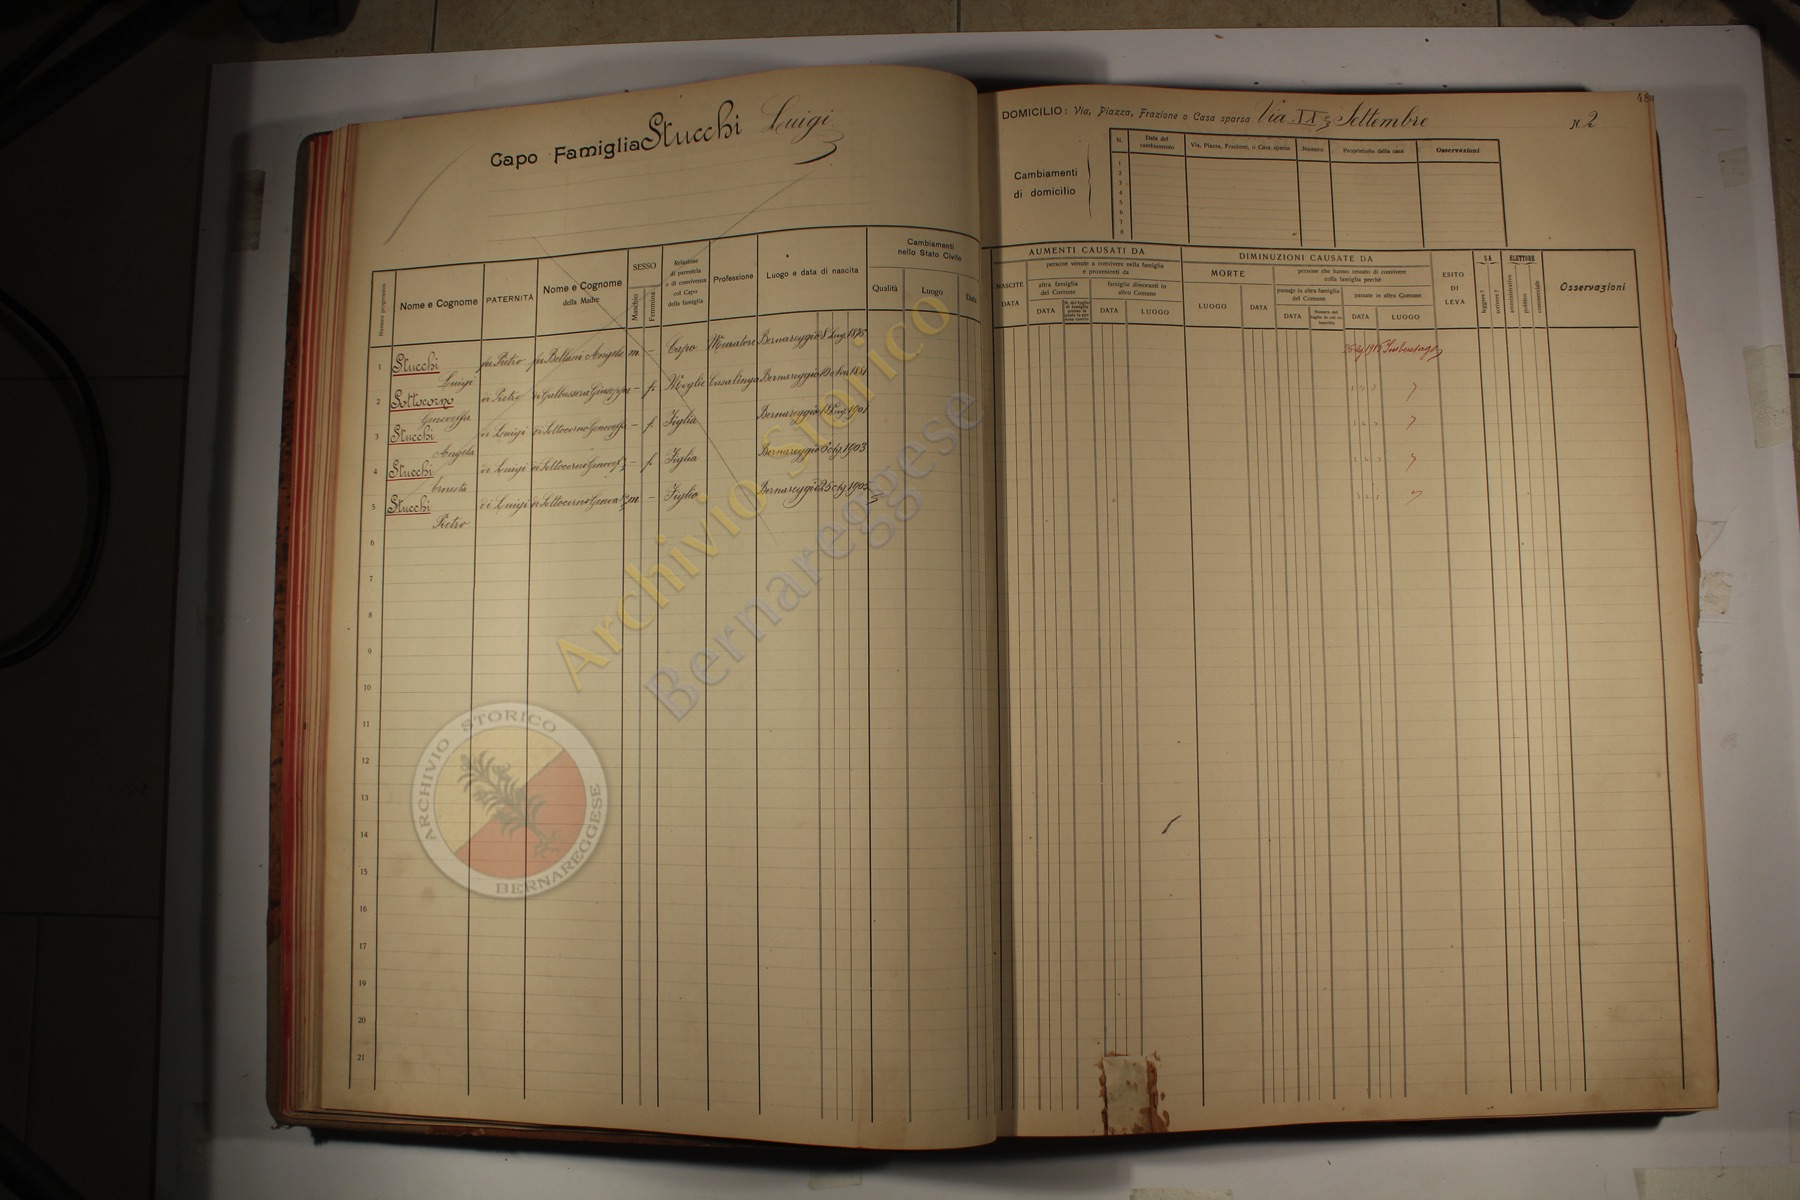 480
Capo Famiglia Stucchi Luigi
DOMICILIO: Via, Piazza, Frazione o Casa sparsa Via XX Settembre N. 2
Cambiamenti di domicilio
N. Data del cambiamento Via, Piazza, Frazione, o Casa sparsa Numero Proprietario della casa Osservazioni
1
2
3
4
5
6
7
8
Numero progressivo Nome e Cognome PATERNITÀ Nome e Cognome della Madre SESSO Maschio Femmina Relazione di parentela o di convivenza col Capo della famiglia Professione Luogo e data di nascita Cambiamenti nello Stato Civile Qualità Luogo Data
AUMENTI CAUSATI DA
NASCITE DATA
persone venute a convivere nella famiglia e provenienti da
altra famiglia del Comune DATA
famiglie dimoranti in altro Comune DATA LUOGO
DIMINUZIONI CAUSATE DA
MORTE LUOGO DATA
persone che hanno cessato di convivere colla famiglia perchè
passate in altra famiglia del Comune DATA
passate in altro Comune DATA LUOGO
ESITO DI LEVA
SA leggere? scrivere?
ELETTORE amministrativo politico commerciale
Osservazioni
1 Stucchi Luigi fu Pietro fu Bellani Angela m. – Capo Muratore Bernareggio 1915
2 Sottocorno Genoveffa di Pietro di Galbussera Giuseppa – f. Moglie Casalinga Bernareggio
3 Stucchi Angela di Luigi di Sottocorno Genoveffa – f. Figlia Bernareggio 1901
4 Stucchi Ernesta di Luigi di Sottocorno – f. Figlia Bernareggio 1903
5 Stucchi Pietro di Luigi di Sottocorno m. – Figlio Bernareggio 1905
6
7
8
9
10
11
12
13
14
15
16
17
18
19
20
21
Archivio Storico
Bernareggese
ARCHIVIO STORICO
BERNAREGGESE